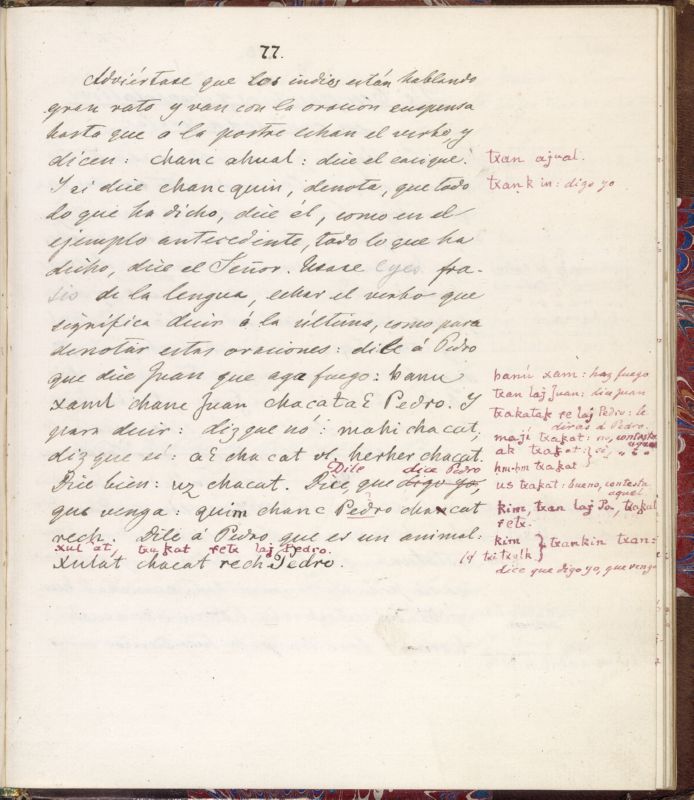 77.
Adviértase que los indios están hablando
gran rato y van con la oración suspensa
hasta que á la postre echan el verbo, y
dicen: chanc ahual: dice el cacique.
Y si dice chancquin, denota, que todo
lo que ha dicho, dice él, como en el
ejemplo antecedente, todo lo que ha
dicho, dice el Señor. Usase
de la lengua, echar el verbo que
significa decir á la última, como para
denotar estas oraciones: dile á Pedro
que dice Juan que aga fuego: banu
xaml chanc Juan chacataE Pedro. Y
para decir: diz que nó: mahi chacat,
diz que sí: aE chacat vl, herher chacat.
Dile dice Pedro
Dice bien: uz chacat. Dice, que digo yo,
que venga: quim chanc Pedro chaxcat
rech. Dile á Pedro que es un animal:
xul at, txakat retx laj Pedro.
xulat chacat rech Pedro.
txan ajual.
txankin: digo yo
banú xam: haz fuego
txan laj Juan: dice Juan
txakatak re laj Pedro: le
dirás á Pedro.
mají txakat: no, contesta
aquel
ak txakat: sí, " "
txakat
us txakat: bueno, contesta
aquel
kim, txan laj Pa, txakat
retx.
kim } txankin txan:
dice que digo yo, que venga